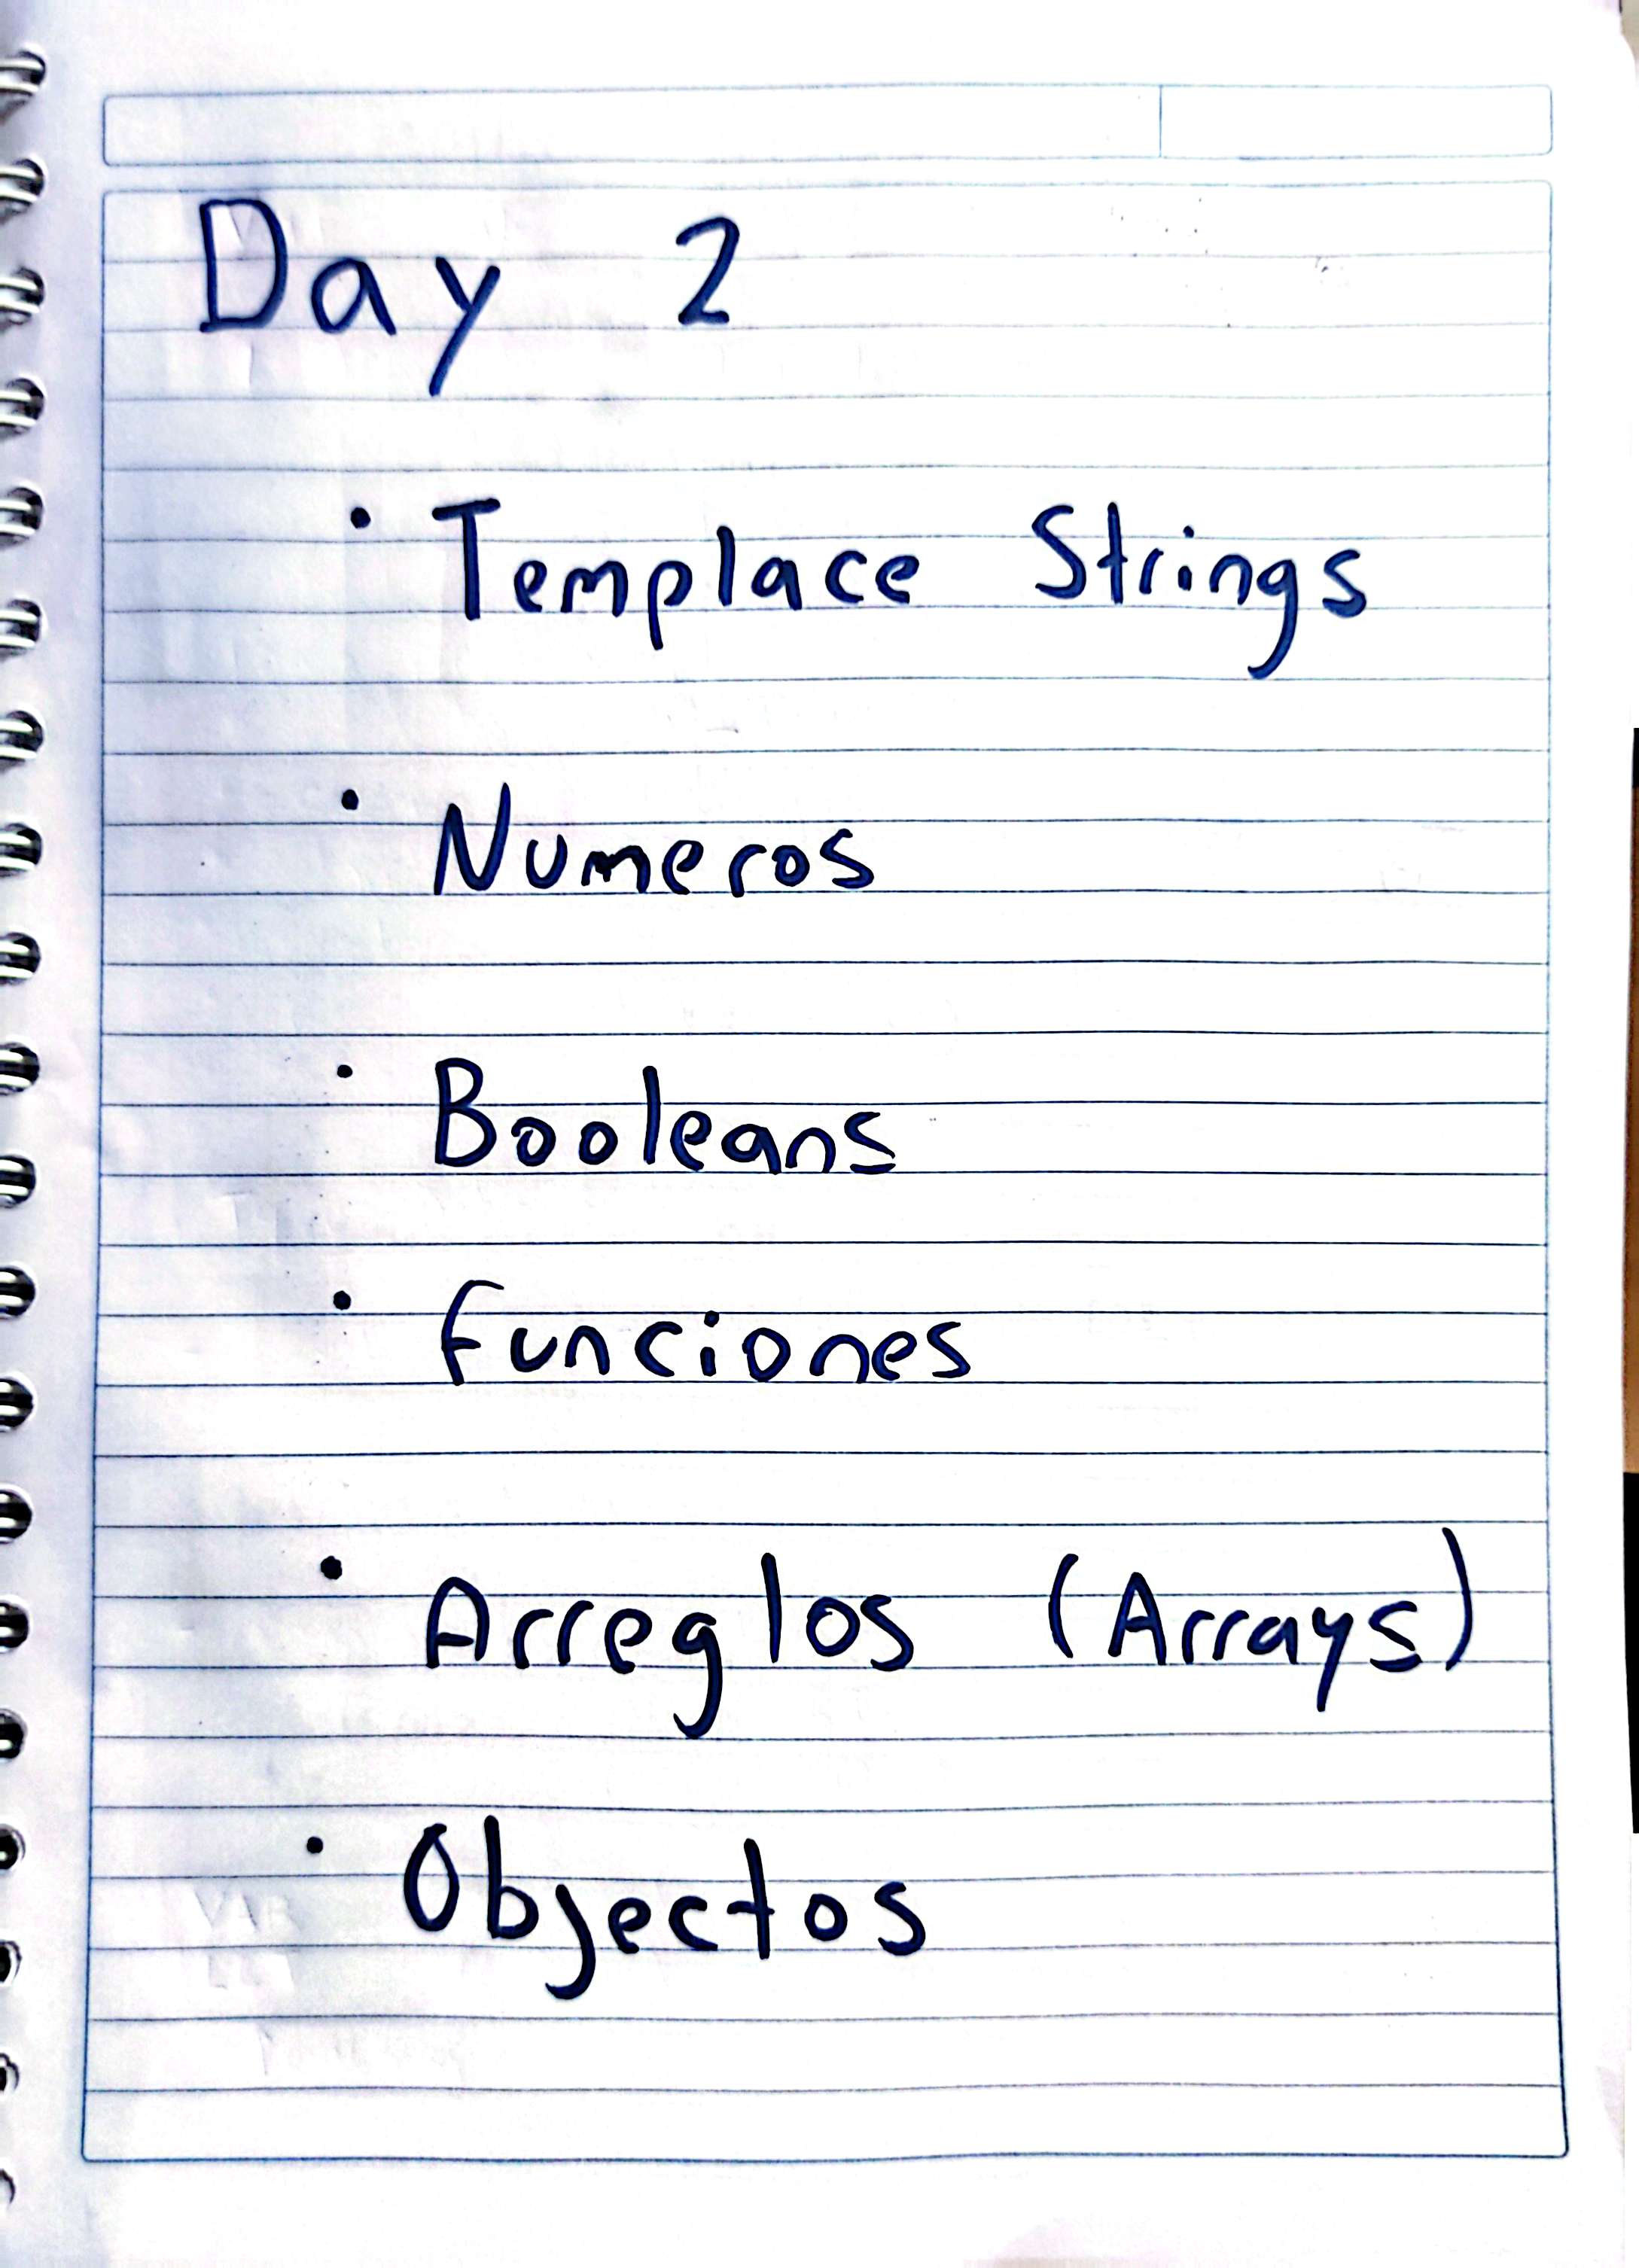 Day 2
• Templace Strings
• Numeros
• Booleans
• funciones
• Arreglos (Arrays)
• Objectos